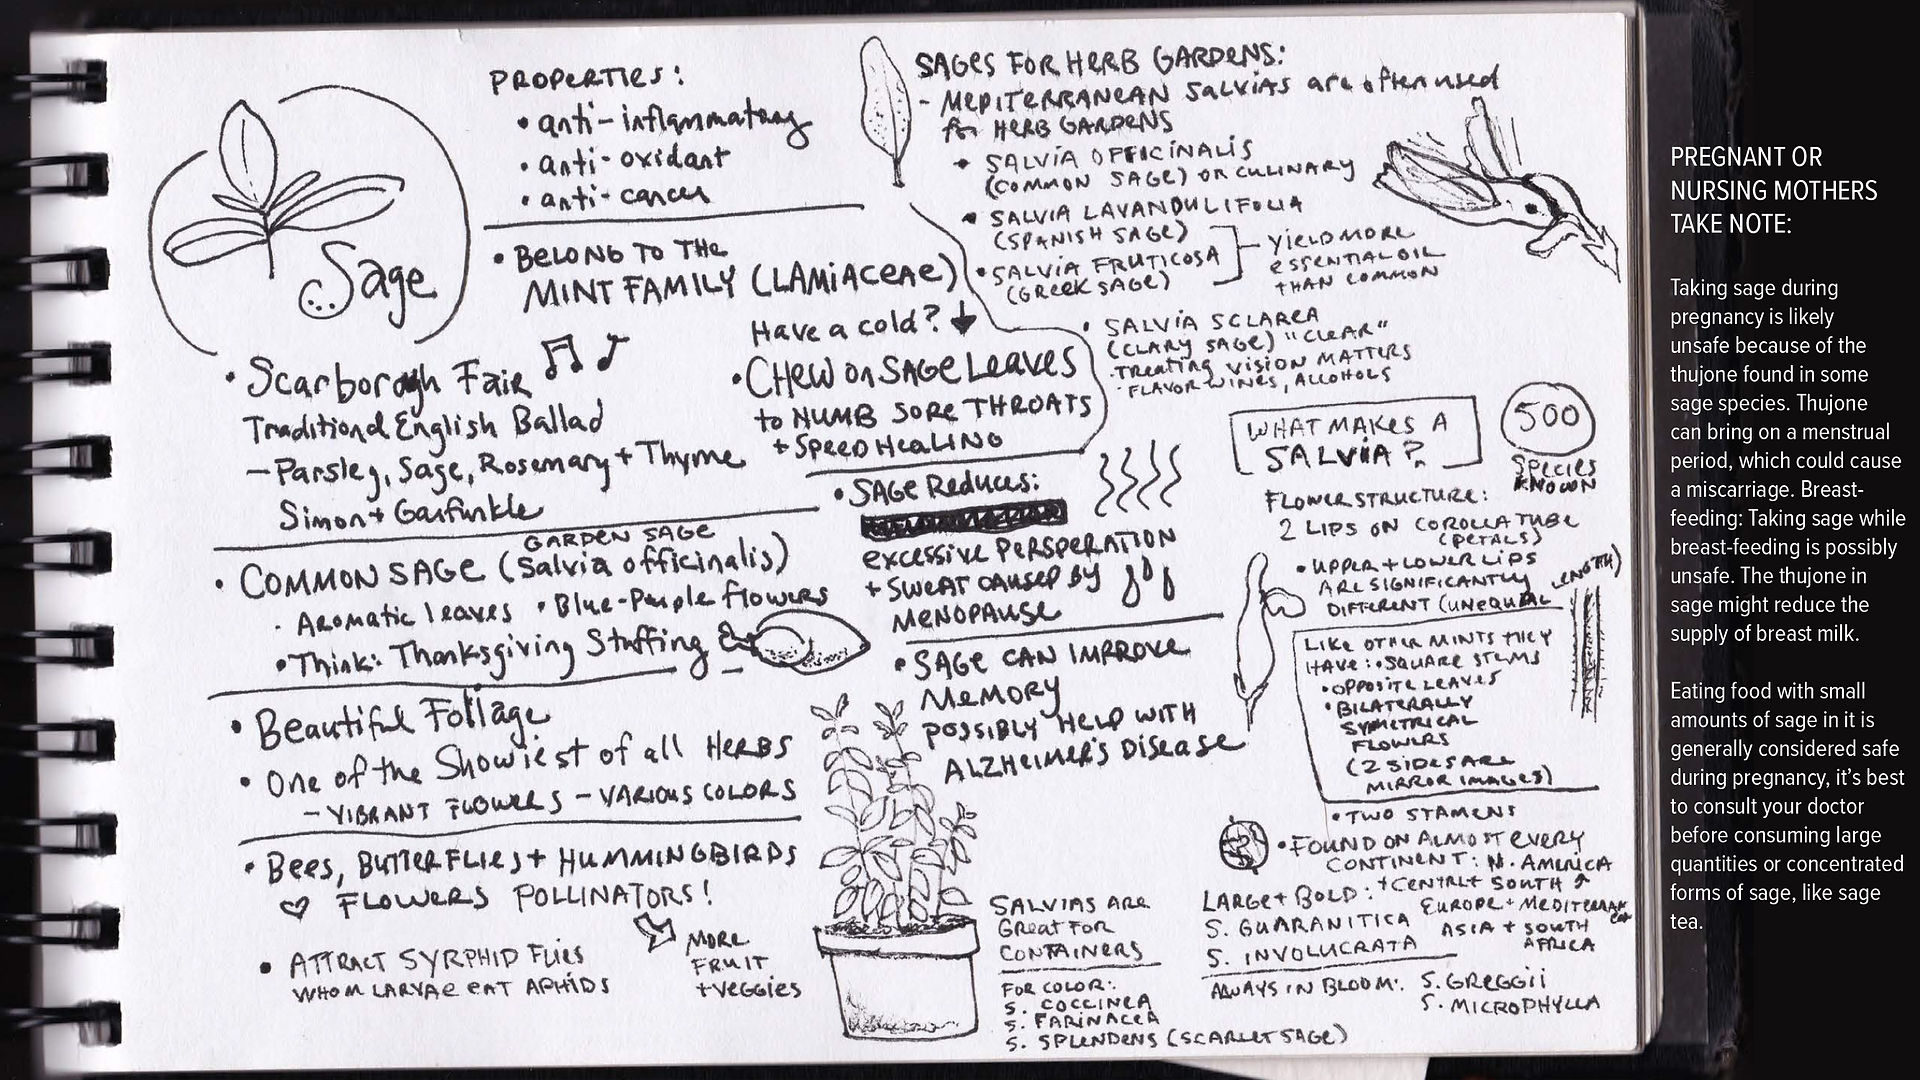 Sage
PROPERTIES:
• anti-inflammatory
• anti-oxidant
• anti-cancer
• BELONG TO THE
MINT FAMILY (LAMIACEAE)
• Scarborough Fair
Traditional English Ballad
– Parsley, Sage, Rosemary + Thyme
Simon + Garfunkle
Have a cold?
• CHEW on SAGE LEAVES
to NUMB SORE THROATS
+ SPEED HEALING
GARDEN SAGE
• COMMON SAGE (Salvia officinalis)
• Aromatic leaves • Blue-Purple flowers
• Think: Thanksgiving Stuffing
• Beautiful Follage
• One of the Showiest of all HERBS
– VIBRANT FLOWERS – VARIOUS COLORS
• Bees, BUTTERFLIES + HUMMINGBIRDS
FLOWERS POLLINATORS!
• ATTRACT SYRPHID FLIES
WHOM LARVAE EAT APHIDS
MORE
FRUIT
+ VEGGIES
• SAGE REDUCES:
EXCESSIVE PERSPERATION
+ SWEAT CAUSED BY
MENOPAUSE
• SAGE CAN IMPROVE
MEMORY
POSSIBLY HELP WITH
ALZHEIMER'S DISEASE
SALVIAS ARE
GREAT FOR
CONTAINERS
FOR COLOR:
S. COCCINEA
S. FARINACEA
S. SPLENDENS (SCARLET SAGE)
SAGES FOR HERB GARDENS:
- MEDITERRANEAN SALVIAS are often used
for HERB GARDENS
• SALVIA OFFICINALIS
(COMMON SAGE) OR CULINARY
• SALVIA LAVANDULIFOLIA
(SPANISH SAGE)
• SALVIA FRUTICOSA
(GREEK SAGE)
YIELD MORE
ESSENTIAL OIL
THAN COMMON
• SALVIA SCLAREA
(CLARY SAGE) "CLEAR"
• TREATING VISION MATTERS
• FLAVOR WINES, ALCOHOLS
WHAT MAKES A
SALVIA?
500
SPECIES
KNOWN
FLOWER STRUCTURE:
2 LIPS ON COROLLA TUBE
(PETALS)
• UPPER + LOWER LIPS
ARE SIGNIFICANTLY
DIFFERENT (UNEQUAL LENGTH)
LIKE OTHER MINTS THEY
HAVE: • SQUARE STEMS
• OPPOSITE LEAVES
• BILATERALLY
SYMETRICAL
FLOWERS
(2 SIDES ARE
MIRROR IMAGES)
• TWO STAMENS
• FOUND ON ALMOST EVERY
CONTINENT: N. AMERICA
+ CENTRL + SOUTH
EUROPE + MEDITERRANEAN
ASIA + SOUTH
AFRICA
LARGE + BOLD:
S. GUARANITICA
S. INVOLUCRATA
ALWAYS IN BLOOM: S. GREGGII
S. MICROPHYLLA
PREGNANT OR
NURSING MOTHERS
TAKE NOTE:
Taking sage during
pregnancy is likely
unsafe because of the
thujone found in some
sage species. Thujone
can bring on a menstrual
period, which could cause
a miscarriage. Breast-
feeding: Taking sage while
breast-feeding is possibly
unsafe. The thujone in
sage might reduce the
supply of breast milk.
Eating food with small
amounts of sage in it is
generally considered safe
during pregnancy, it's best
to consult your doctor
before consuming large
quantities or concentrated
forms of sage, like sage
tea.